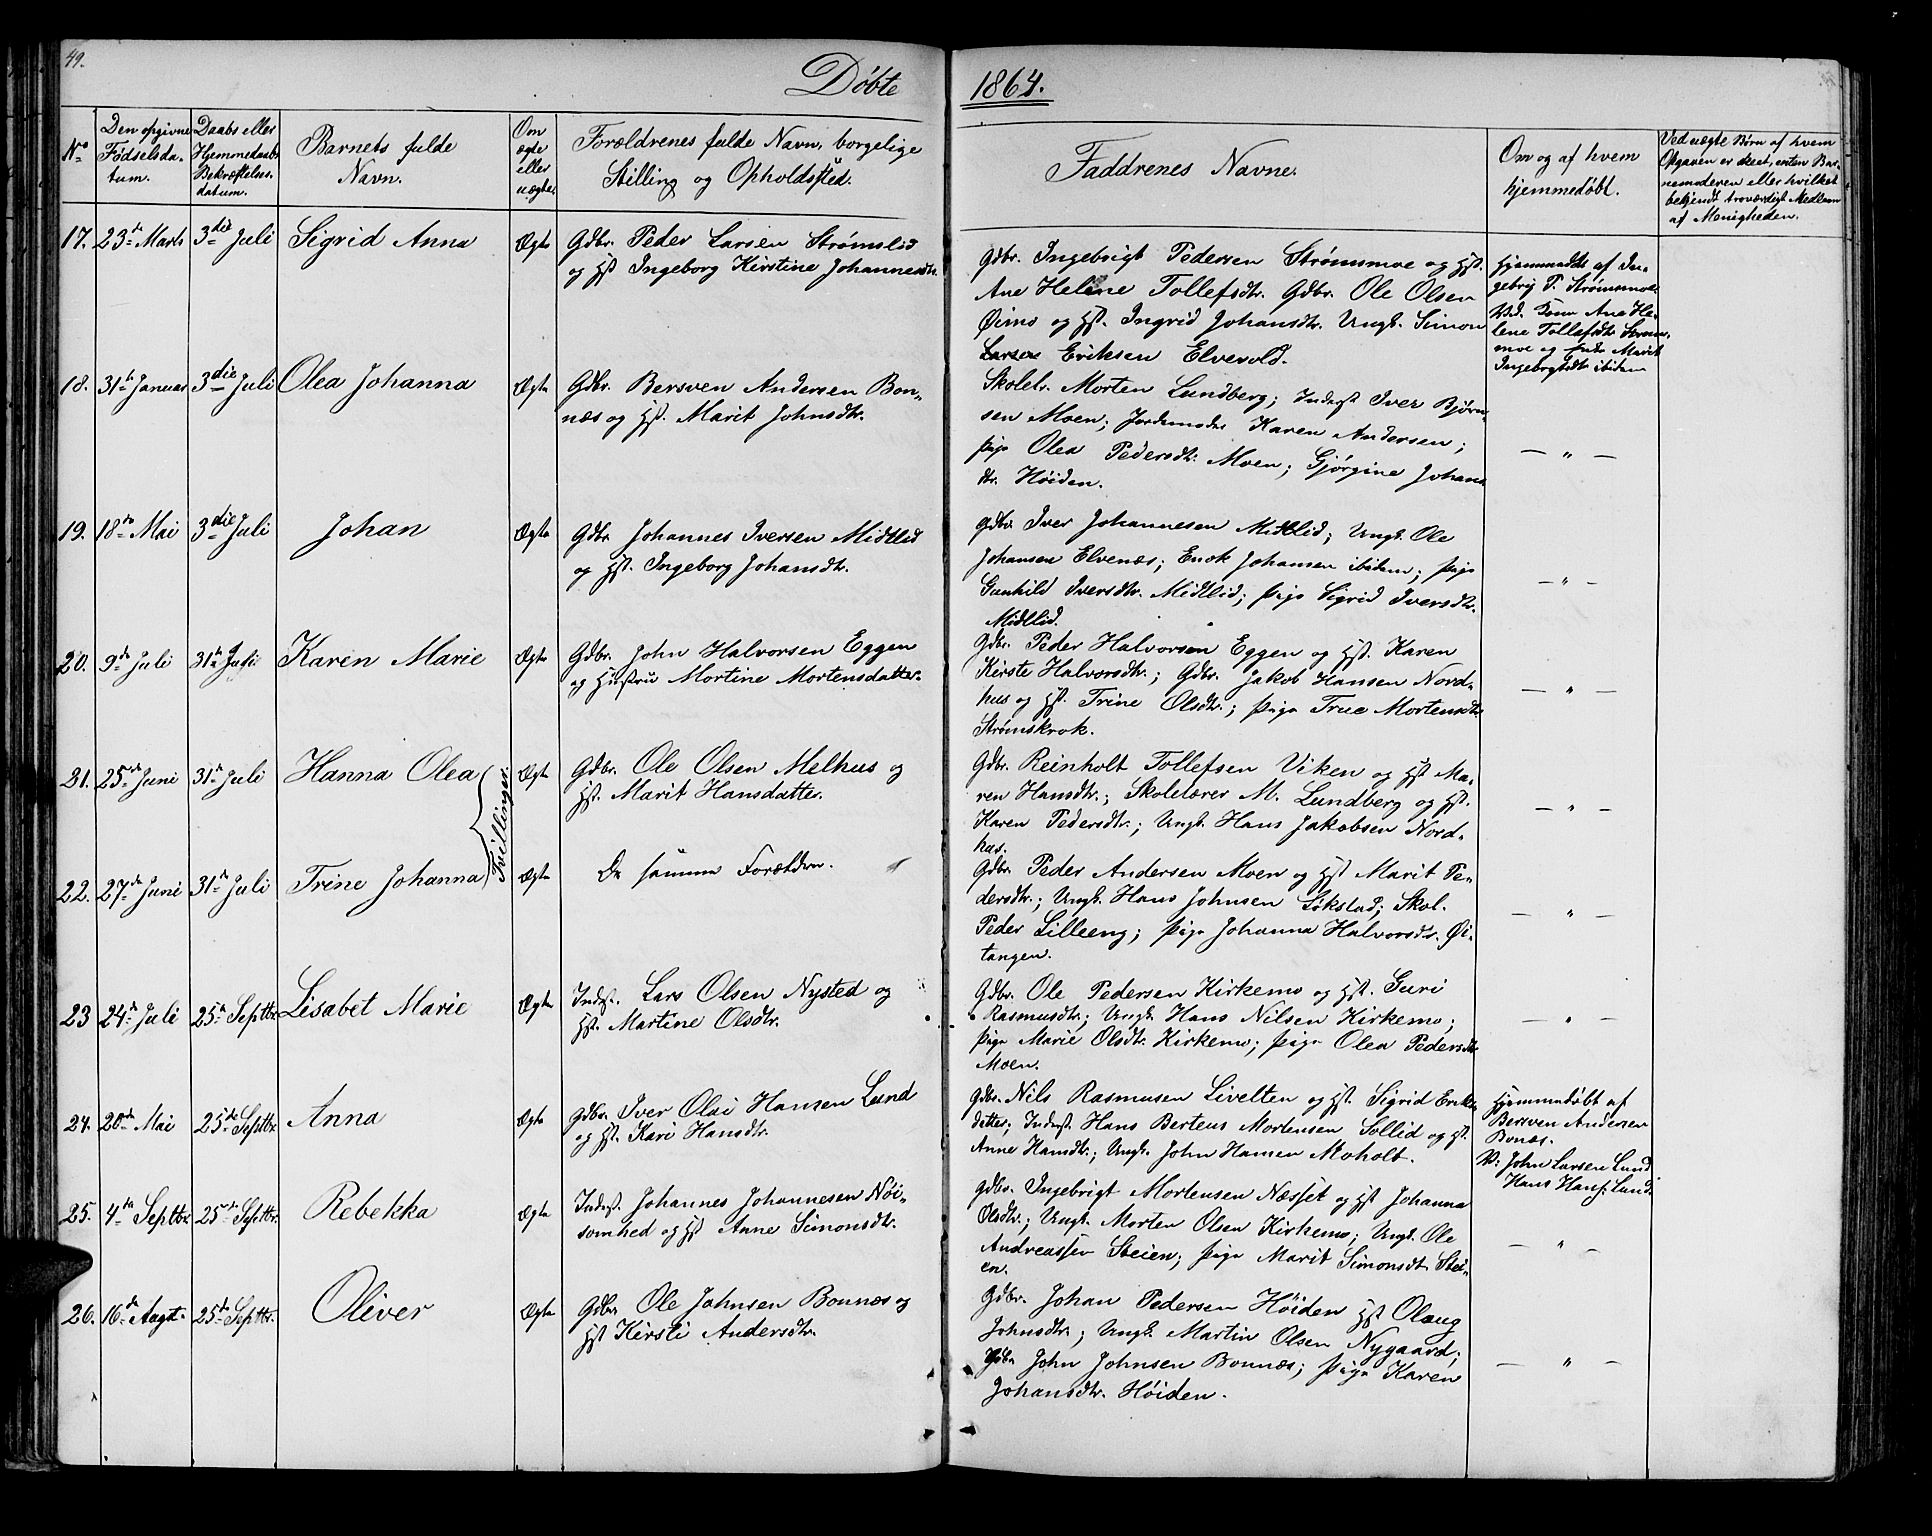 49.
Døbte
1864.
No
Den opgivne
Fødselsda-
tum.
Daabs eller
Hjemmedaabs
Bekræftelses-
datum.
Barnets fulde
Navn.
Om
ægte
eller
uægte.
Forældrenes fulde Navn, borgelige
Stilling og Opholdssted.
Faddrenes Navne.
Om og af hvem
hjemmedøbt.
Ved uægte Børn af hvem
Opgaven er skeet, enten Bar-
nemoderen eller hvilket
bekjendt troværdigt Medlem
af Menigheden.
17. 23de Marts 3die Juli Sigrid Anna Ægte Gdbr. Peder Larsen Strømslid
og Hst. Ingeborg Kirstine Johannesdtr.
Gdbr. Ingebrigt Pedersen Strømsmoe og Hst.
Ane Helene Tollefsdtr. Gdbr. Ole Olsen
Øimo og Hst. Ingrid Johansdtr. Ungk. Simon
Larsen Eriksen Elvevold.
Hjemmedøbt af In-
gebrig P. Strømsmoe.
Vid. Kone Ane He-
lene Tollefsdtr Strøms-
moe og Marit
Ingebrgtsdtr ibidem
18. 31te Januar 3die Juli Olea Johanna Ægte Gdbr. Bersven Andersen Bon-
næs og Hst. Marit Johnsdtr.
Skolelr. Morten Lundberg; Inderst Iver Bjørn-
sen Moen; Jordemoder Karen Andersen;
Pige Olea Pedersdtr. Moen; Gjørgine Johans
dtr. Høiden.
— " —
19. 18de Mai 3die Juli Johan Ægte Gdbr Johannes Iversen Midtlid
og Hst. Ingeborg Johansdtr.
Gdbr Iver Johannesen Midtlid; Ungk. Ole
Johansen Elvenæs; Enok Johansen ibidem; Pige
Gunhild Iversdtr. Midtlid; Pige Sigrid Iversdtr.
Midtlid.
— " —
20. 9de Juli 31te Juli Karen Marie Ægte Gdbr. John Halvorsen Eggen
og Hustru Martine Mortensdatter.
Gdbr. Peder Halvorsen Eggen og Hst. Karen
Kirste Halvorsdtr.; Gdbr. Jakob Hansen Nord-
hus og Hst. Trine Olsdtr.; Pige True Mortensdtr
Strømskrok.
— " —
21. 25de Juni 31te Juli Hanna Olea Tvillinger. Ægte Gdbr. Ole Olsen Melhus og
Hst. Marit Hansdatter.
Gdbr. Reinholt Tollefsen Viken og Hst Ma-
ren Hansdtr.; Skolelærer M. Lundberg og Hst.
Karen Pedersdtr.; Ungk. Hans Jakobsen Nord-
hus.
— " —
22. 27de Juni 31te Juli Trine Johanna Ægte De samme Forældre.
Gdbr. Peder Andersen Moen og Hst Marit Pe-
dersdtr.; Ungk. Hans Johnsen Løkstad; Skol.
Peder Lilleeng; Pige Johanna Halvorsdtr. Øi-
tangen.
— " —
23 24de Juli 25de Septbr. Lisabet Marie Ægte Inderst. Lars Olsen Nysted og
Hst. Martine Olsdtr.
Gdbr. Ole Pedersen Kirkemo og Hst. Guri
Rasmusdtr; Ungk. Hans Nilsen Kirkemo;
Pige Marie Olsdtr. Kirkemo; Pige Olea Pedersdtr
Moen.
— " —
24. 20de Mai 25de Septbr. Anna Ægte Gdbr. Iver Olai Hansen Lund
og Hst Kari Hansdtr.
Gdbr. Nils Rasmusen Livelten og Hst. Sigrid Eriks-
datter; Inderst. Hans Berteus Mortensen Sollid og Hst.
Anne Hansdtr.; Ungk. John Hansen Moholt.
Hjemmedøbt af
Bersven Andersen
Bonæs.
V: John Larsen Lund
Hans Hans: Lund
25. 4de Septbr. 25de Septbr. Rebekka Ægte Inderst. Johannes Johannesen Nøi-
somhed og Hst Anne Simonsdtr.
Gdbr. Ingebrigt Mortensen Næsset og Hst Johanna
Olsdtr.; Ungk. Morten Olsen Kirkemo; Ungk. Ole
Andreassen Steien; Pige Marit Simonsdtr. Stei-
en.
— " —
26. 16de Augt. 25de Septbr. Oliver Ægte Gdbr Ole Johnsen Bonnæs og
Hst Kirsti Andersdtr.
Gdbr. Johan Pedersen Høiden Hst Olaug
Johnsdtr.; Ungk. Martin Olsen Nygaard;
Gdbr John Johnsen Bonnæs; Pige Karen
Johansdtr. Høiden.
— " —